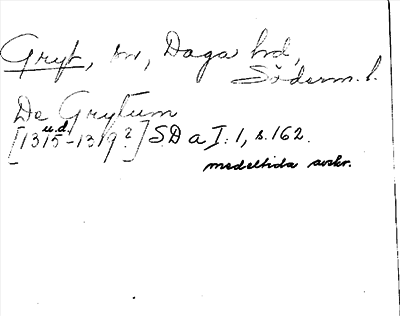 Gryt, sn, Daga hd,
Söderm. l.
De Grytum
u.d.
[1315-1319?] SD a I:1, s. 162.
medeltida avskr.